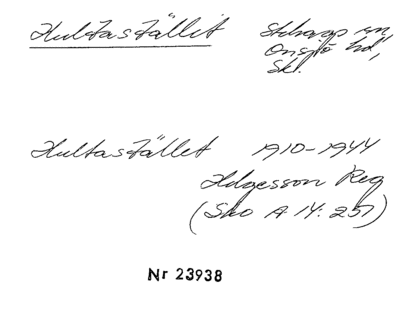 Hultastället Stehag sn,
Onsjö hd,
Sk.
Hultastället 1910-1944
Helgesson Reg
(Sko A 14: 251)
Nr 23938